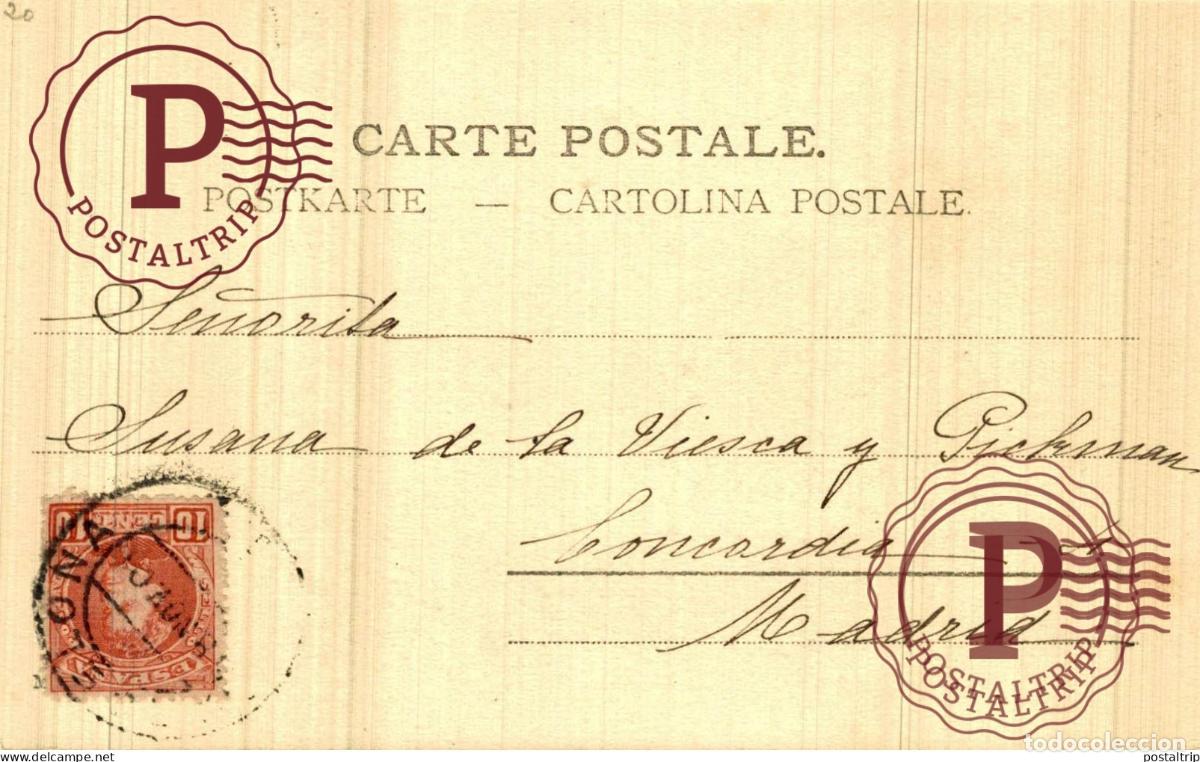 20
P
POSTALTRIP
CARTE POSTALE.
POSTKARTE — CARTOLINA POSTALE.
Señorita
Susana de la Viesca y Pickman
Concordia
Madrid
10 CENT 10
ESPAÑA
P
POSTALTRIP
POSTALTRIP
todocoleccion
postaltrip.com
postaltrip